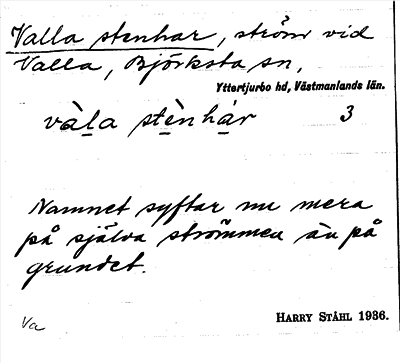 Valla stenhar, ström vid
Valla, Björksta sn,
Yttertjurbo hd, Västmanlands län.
vàl̲a stènhàr 3
Namnet syftar nu mera
på själva strömmen än på
grundet.
Va
HARRY STÅHL 1936.